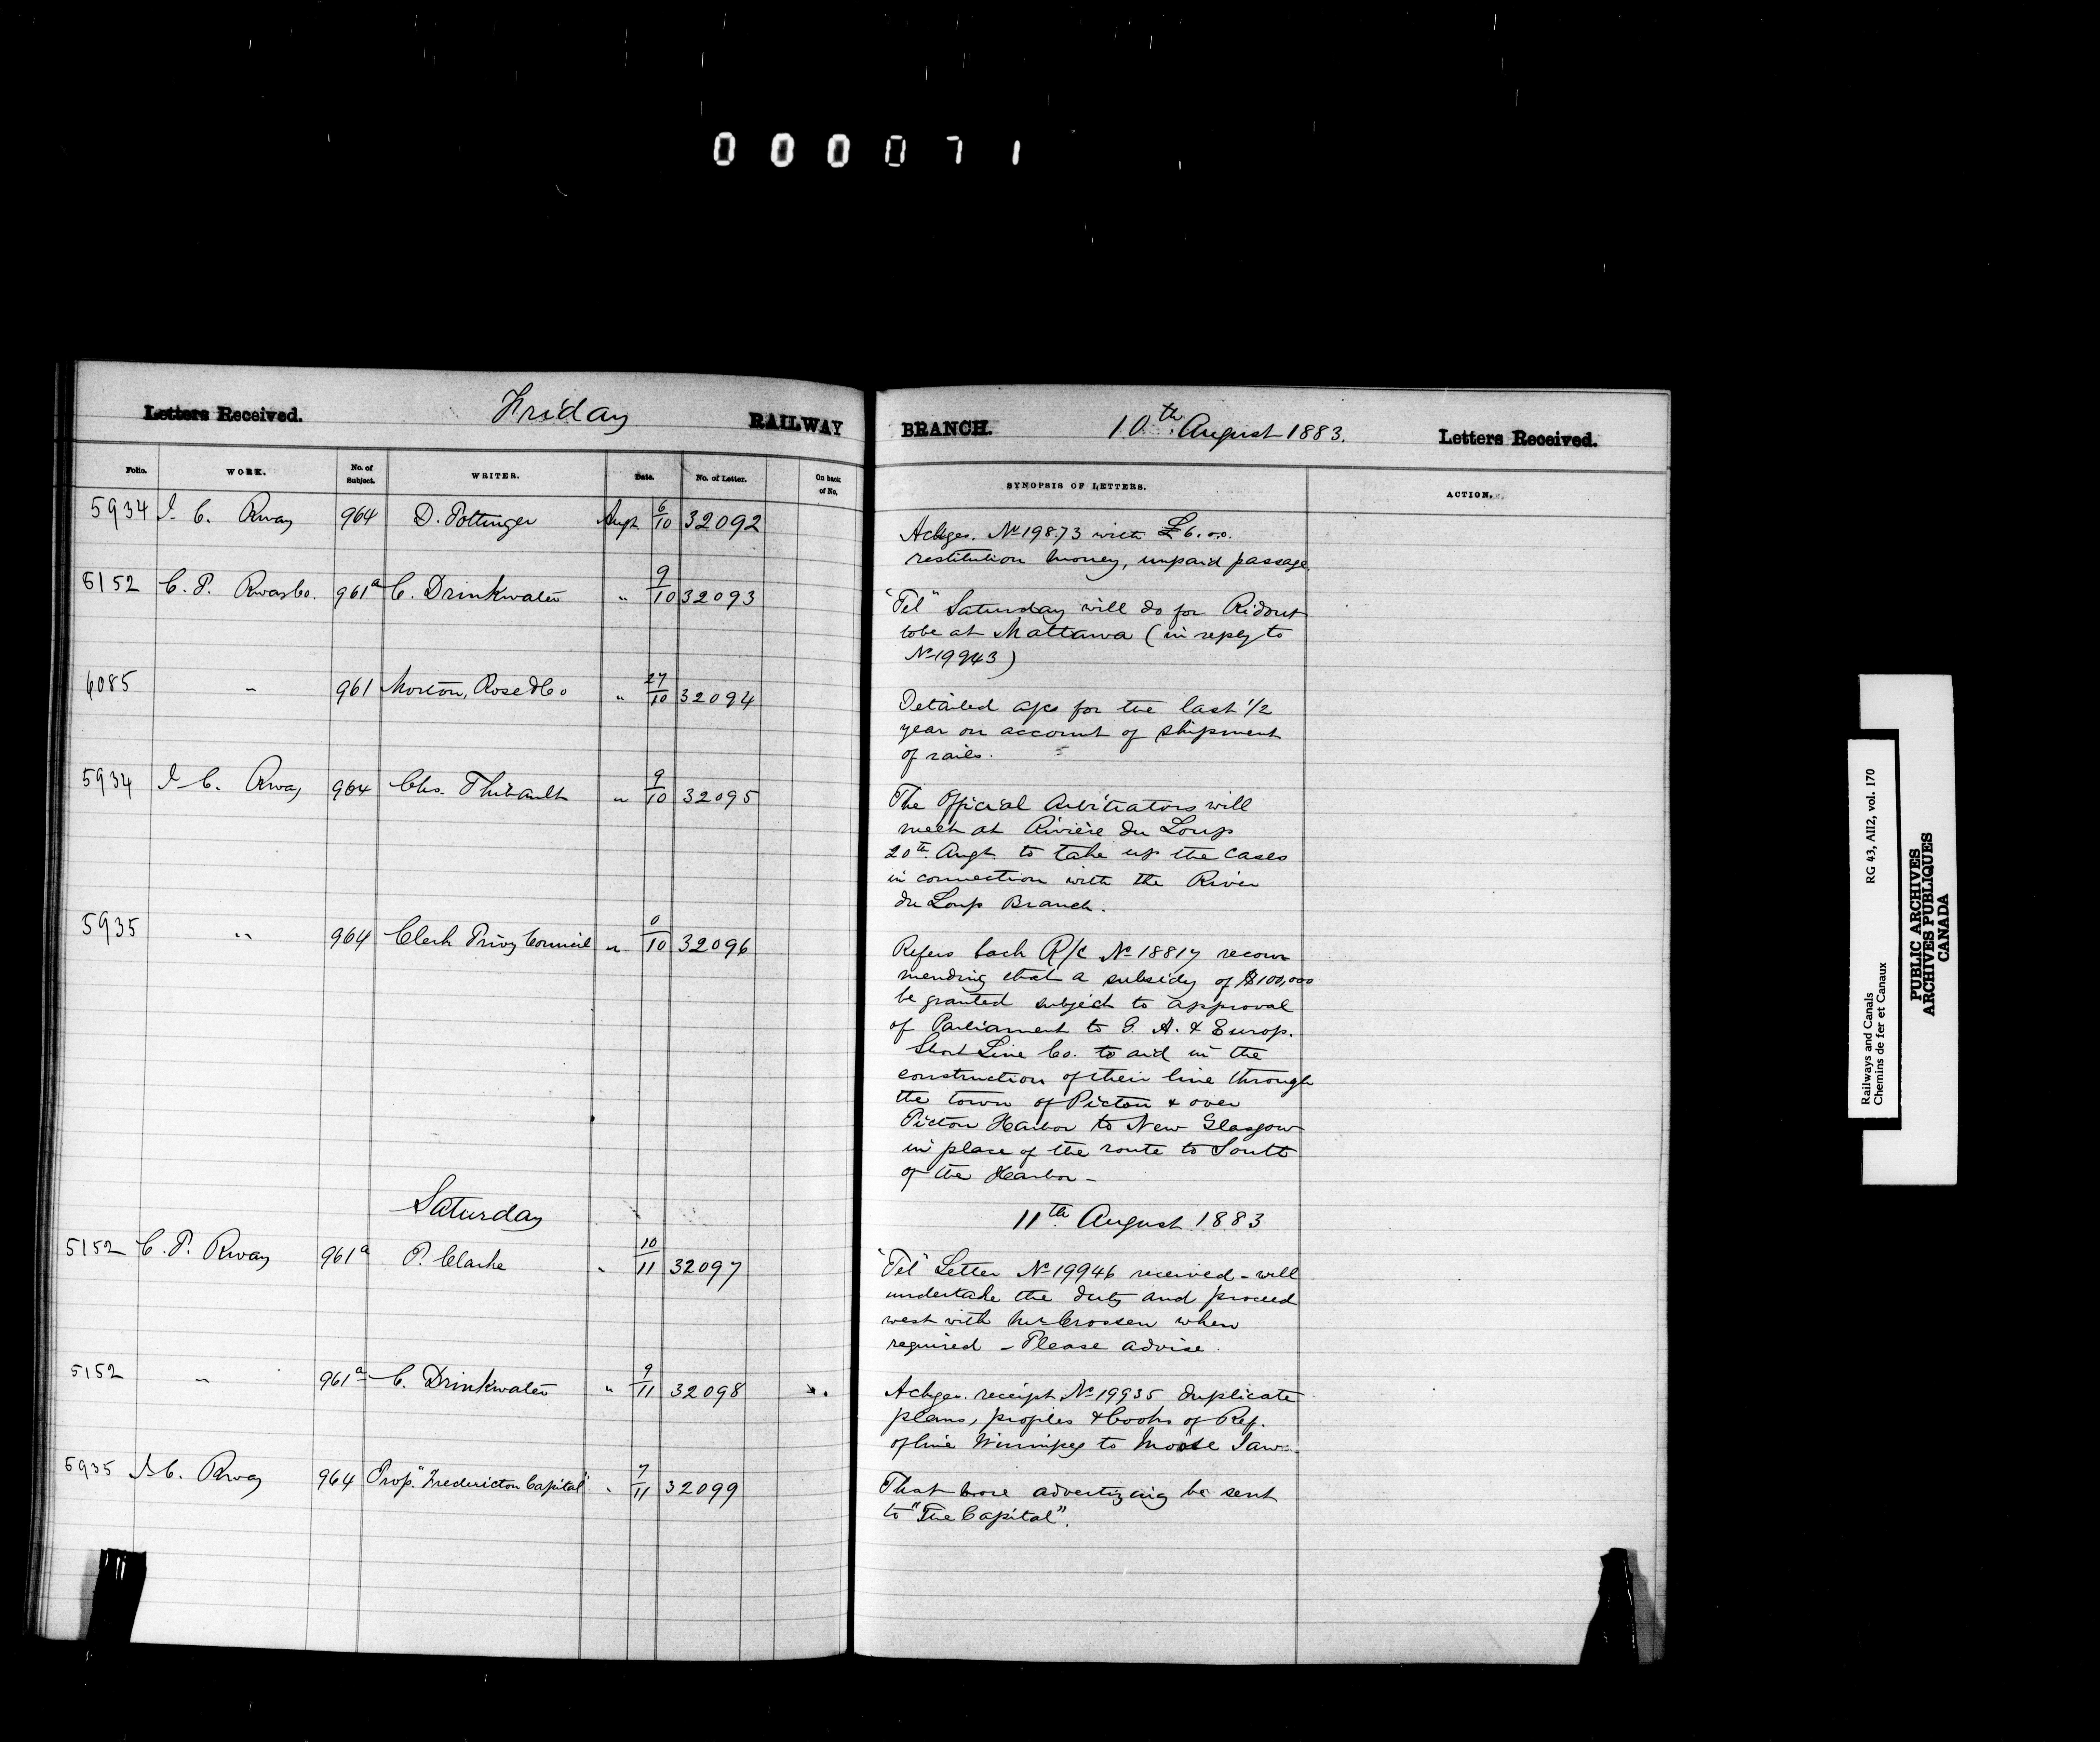 000071
Letters Received. Friday RAILWAY BRANCH. 10th August 1883. Letters Received.
Folio. WORK. No. of Subject. WRITER. Date. No. of Letter. On back of No. SYNOPSIS OF LETTERS. ACTION.
5934 I. C. Rway 964 D. Pottinger Augt 6/10 32092
Ackges. No 19873 with £6.0.0.
restitution money, unpaid passage.
5152 C. P. Rway Co. 961a C. Drinkwater " 9/10 32093
"Tel" Saturday will do for Ridout
to be at Mattawa (in reply to
No 19943)
6085 " 961 Morton, Rose & Co " 27/10 32094
Detailed a/cs for the last 1/2
year on account of shipment
of rails.
5934 I. C. Rway 964 Chs. Thibault " 9/10 32095
The Official Arbitrators will
meet at Rivière du Loup
20th Augt. to take up the cases
in connection with the River
du Loup Branch.
5935 " 964 Clerk Privy Council " 0/10 32096
Refers back R/c No 18817 recom
mending that a subsidy of $100,000
be granted subject to approval
of Parliament to G. A. & Europ.
Short Line Co. to aid in the
construction of their line through
the town of Pictou & over
Pictou Harbor to New Glasgow
in place of the route to South
of the Harbor -
Saturday 11th August 1883
5152 C. P. Rway 961a P. Clarke " 10/11 32097
"Tel" Letter No 19946 received - will
undertake the duty and proceed
west with Mr Crossen when
required - Please advise.
5152 " 961a C. Drinkwater " 9/11 32098
Ackges. receipt No 19935 duplicate
plans, profiles & books of Ref.
of line Winnipeg to Moose Jaw.
5935 I. C. Rway 964 Prop. "Fredericton Capital" " 7/11 32099
That more advertizing be sent
to "The Capital".
Railways and Canals
Chemins de fer et Canaux
RG 43, AII2, vol. 170
PUBLIC ARCHIVES
ARCHIVES PUBLIQUES
CANADA